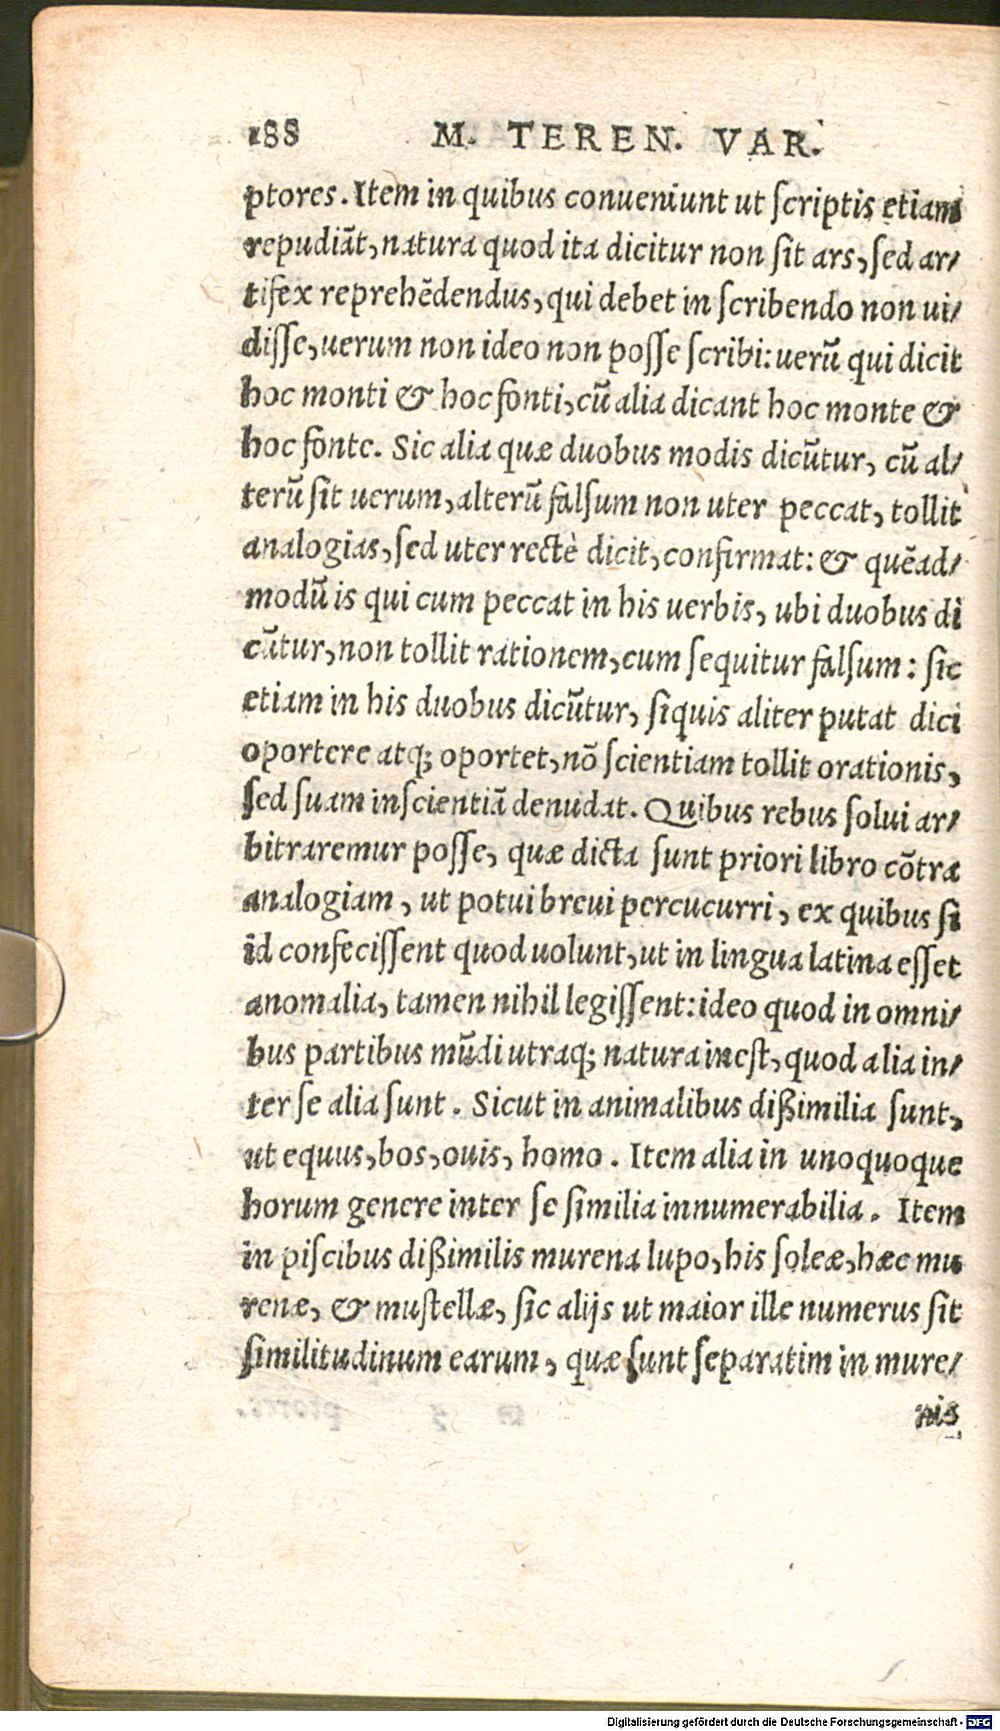 188 M. TEREN. VAR.
ptores. Item in quibus conueniunt ut ſcriptis etiam
repudiãt, natura quod ita dicitur non ſit ars, ſed ar/
tifex reprehẽdendus, qui debet in ſcribendo non ui/
diſſe, uerum non ideo non poſſe ſcribi: uerũ qui dicit
hoc monti & hoc fonti, cũ alia dicant hoc monte &
hoc fonte. Sic alia quæ duobus modis dicũtur, cũ al/
terũ ſit uerum, alterũ falſum non uter peccat, tollit
analogias, ſed uter rectè dicit, confirmat: & quẽad/
modũ is qui cum peccat in his uerbis, ubi duobus di
cũtur, non tollit rationem, cum ſequitur falſum: ſic
etiam in his duobus dicũtur, ſiquis aliter putat dici
oportere atq; oportet, nõ ſcientiam tollit orationis,
ſed ſuam inſcientiã denudat. Quibus rebus ſolui ar/
bitraremur poſſe, quæ dicta ſunt priori libro cõtra
analogiam, ut potui breui percucurri, ex quibus ſi
id confeciſſent quod uolunt, ut in lingua latina eſſet
anomalia, tamen nihil legiſſent: ideo quod in omni/
bus partibus mũdi utraq; natura ineſt, quod alia in/
ter ſe alia ſunt. Sicut in animalibus dißimilia ſunt,
ut equus, bos, ouis, homo. Item alia in unoquoque
horum genere inter ſe ſimilia innumerabilia. Item
in piſcibus dißimilis murena lupo, his ſoleæ, hæc mu
renæ, & muſtellæ, ſic alijs ut maior ille numerus ſit
ſimilitudinum earum, quæ ſunt ſeparatim in mure/
nis
Digitalisierung gefördert durch die Deutsche Forschungsgemeinschaft - DFG